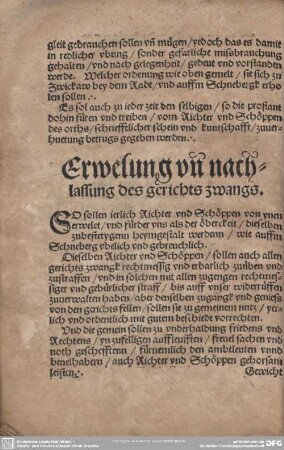 gleit gebrauchen sollen vñ mügen/ yedoch das es damit
in redlicher vbung/ sonder geferlicht misbrauchung
gehalten/ vnd nach gelegenheit/ gedeut vnd vorstanden
werde. Welcher ordenung wie oben gemelt/ sie sich zu
Zwickaw bey dem Radt/ vnd auffm Schnebergk erho
len sollen.
Es sol auch zu ieder zeit den selbigen/ so die profiant
dohin füren vnd treiben/ vom Richter vnd Schöppen
des orths/ schriefftlicher schein vnd kuntschafft/ zuuer-
huetung betrugs gegeben werden.
Erwelung vñ nach-
lassung des gerichts zwangs.
SO sollen ierlich Richter vnd Schöppen von ynen
erwelet/ vnd fürder vns als der öberckeit/ dieselben
zubestetygenn heymgestalt werdenn/ wie auffm
Schneberg vbelich vnd gebreuchlich.
Dieselben Richter vnd Schöppen/ sollen auch allen
gerichts zwangk rechtmessig vnd erbarlich zuüben vnd
zustraffen/ vnd in solchen mit allen zugengen rechtmes-
siger vnd gebürlicher straff/ bis auff vnser widerruffen
zuuerwalten haben/ aber denselben zugangk vnd genies
von den gerichts fellen/ sollen sie zu gemeinem nutz/ yer-
lich vnd ordentlich mit gutem bescheidt vorrechten.
Vnd die gemein sollen zu vnderhalbung friedens vnd
Rechtens/ yn zufelligen auffleufften/ freuel sachen vnd
noth geschefftenn/ fürnemlich den ambtleuten vnnd
beuelhabern/ auch Richter vnd Schöppen gehorsam
leisten.
Gewicht